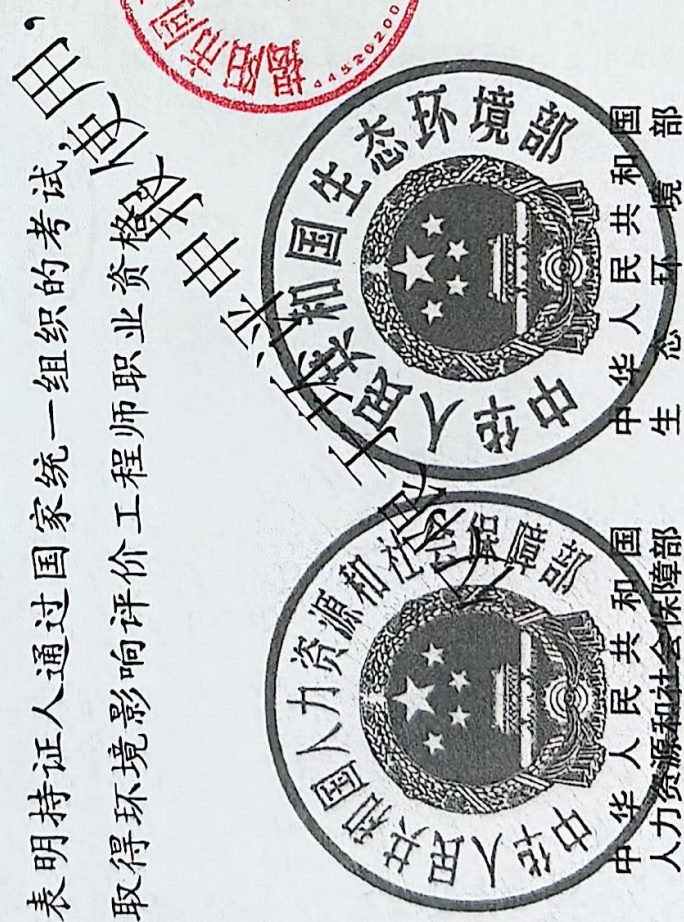 表明持证人通过国家统一组织的考试,
取得环境影响评价工程师职业资格
仅限于环评申报使用,
中华人民共和国人力资源和社会保障部
中华人民共和国
人力资源和社会保障部
中华人民共和国生态环境部
中华人民共和国
生态环境部
揭阳市同
44520200